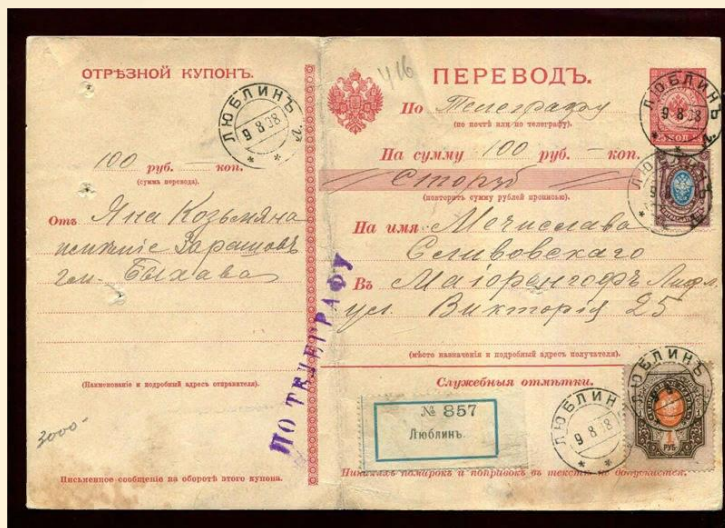 ОТРѢЗНОЙ КУПОНЪ.
ЛЮБЛИНЪ
9 8 08
100 руб. — коп.
(сумма перевода).
Отъ Яна Козьмяна
имѣніе Зарашовъ
гм. Быхава
(Наименованіе и подробный адресъ отправителя).
3000-
Письменное сообщеніе на оборотѣ этого купона.
ПО ТЕЛЕГРАФУ
416
ПЕРЕВОДЪ.
По Телеграфу
(по почтѣ или по телеграфу).
На сумму 100 руб. — коп.
Сто руб
(повторить сумму рублей прописью).
На имя Мечислава
Селивовскаго
Въ Маіоренгофъ Лифл.
ул. Викторія 25
(мѣсто назначенія и подробный адресъ получателя).
Служебныя отмѣтки.
№ 857
Люблинъ.
Никакихъ помарокъ и поправокъ въ текстѣ не допускается.
КОП
ЛЮБЛИНЪ
9 8 08
ЛЮБЛИНЪ
ЛЮБЛИНЪ
9 8 08
ЛЮБЛИНЪ
1 РУБ